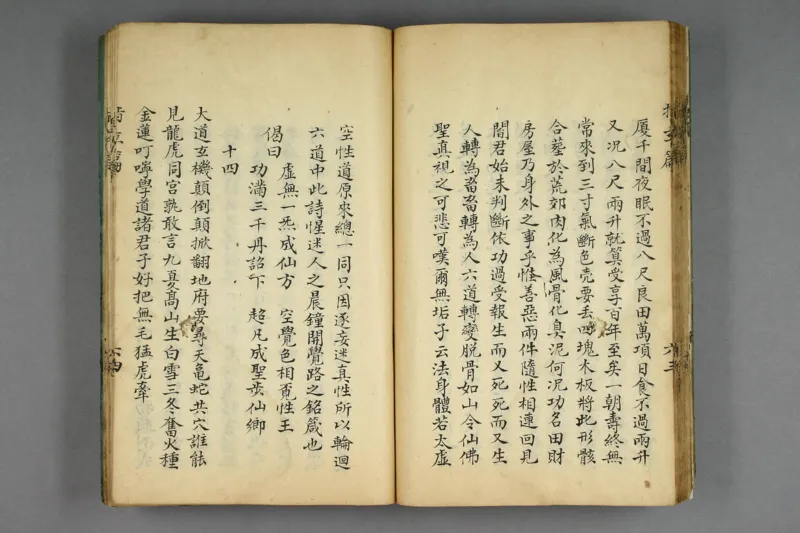 指玄篇
厦千間夜眠不過八尺良田萬頃日食不過兩升
又况八尺兩升就筭受享百年至矣一朝壽終無
常來到三寸氣斷色壳要丢四塊木板將此形骸
合墓於荒郊肉化為風骨化臭泥何泥功名田財
房屋乃身外之事乎惟善惡兩件隨性相連回見
閻君始末判斷依功過受報生而又死死而又生
人轉為畜畜轉為人六道轉變脫骨如山令仙佛
聖真視之可悲可嘆爾無垢子云法身體若太虛
六三
空性道原來總一同只因逐妄迷真性所以輪迴
六道中此詩惺迷人之晨鐘開覺路之銘箴也
偈曰
虛無一炁成仙方　空覺色相覔性王
功滿三千丹詔下　超凡成聖步仙鄉
十四
大道玄機顛倒顛掀翻地府要尋天龜蛇共穴誰能
見龍虎同宮孰敢言九夏髙山生白雪三冬奮火種
金蓮叮嚀學道諸君子好把無毛猛虎牽
指玄篇
六四